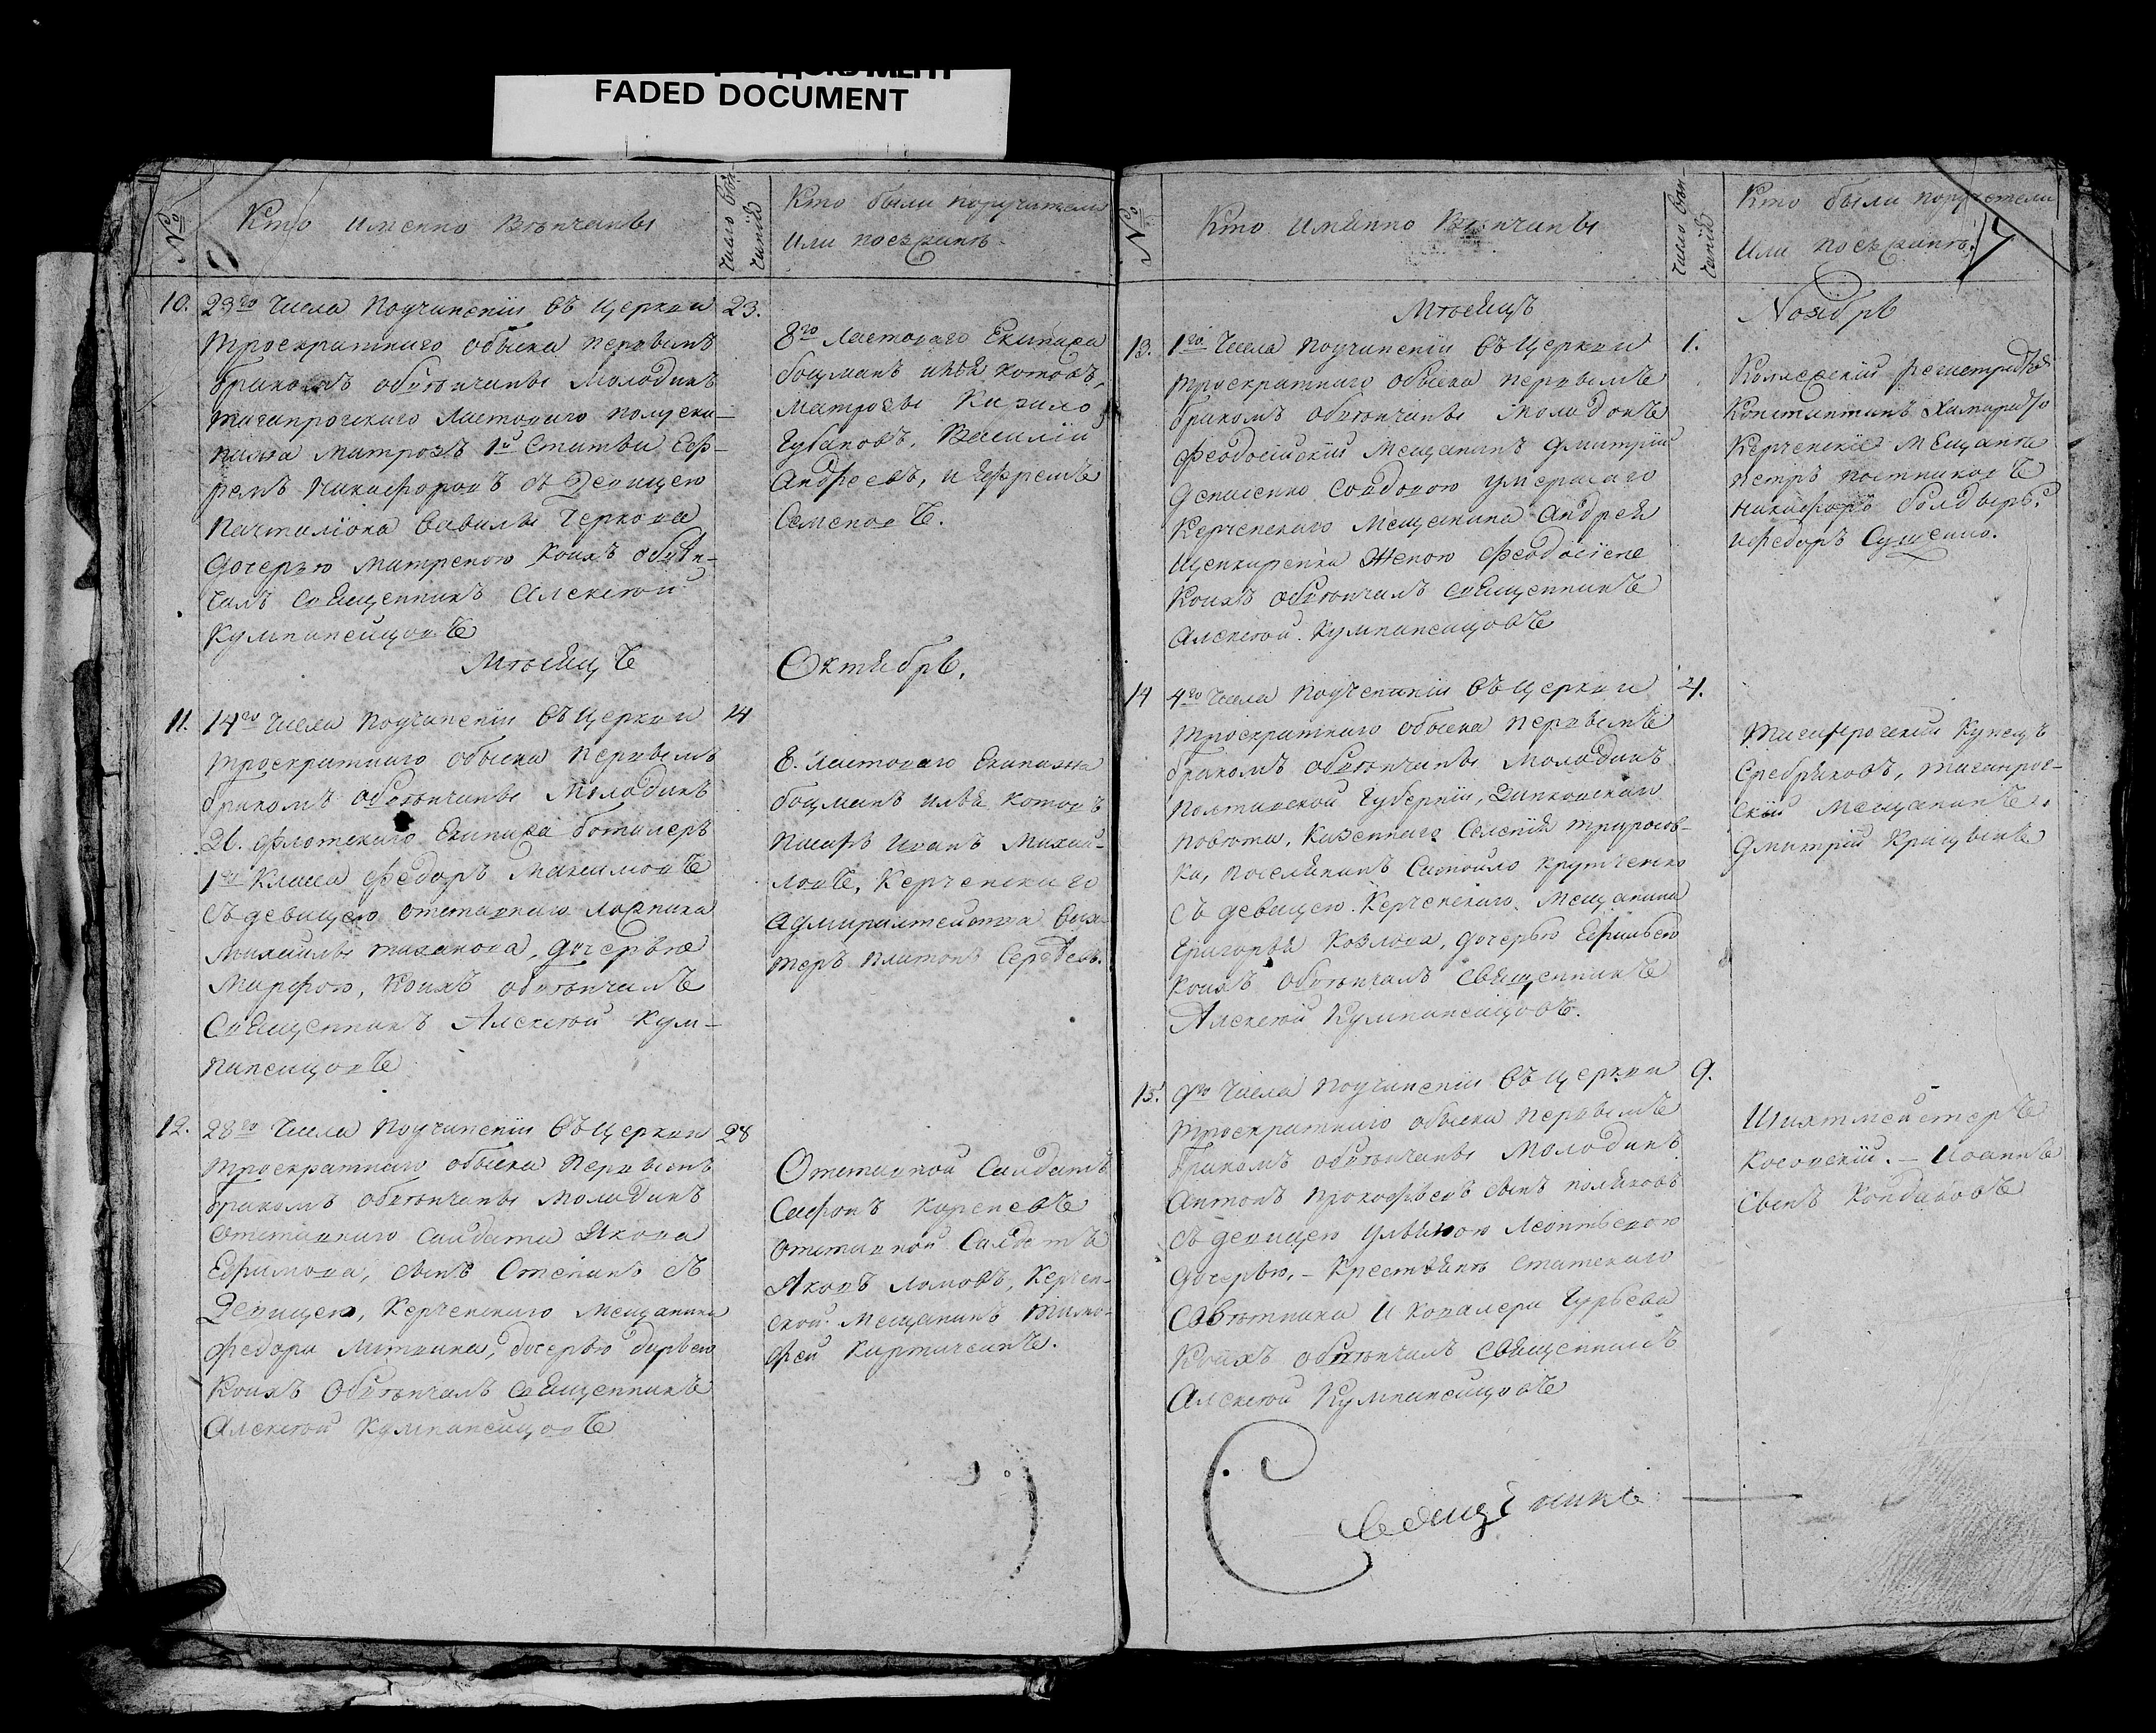 FADED DOCUMENT
№
Кто именно Венчаны
число вѣн-
чанія
Кто были поручатели
или поезжанѣ
10. 23го числа Поучиненіи въ церкви 23.
троекратнаго обыска первымъ
бракомъ обвѣнчаны Молодикъ
таганрогскаго Ластоваго полуеки-
пажа матрозъ 1й Статьи Еф-
ремъ Никифоровъ съ Девицею
Почталіона Вавилы
дочерью Матреною коихъ обвѣн-
чалъ Священникъ Алексѣй
Кумпансицовъ
8го Ластоваго Екипажа
боцманъ илья котовъ,
матрозы Кирило
Губановъ, Василій
Андреевъ, и Ефремъ
Семеновъ.
Мѣсяцъ Октябрь.
11. 14го числа Поучиненіи въ Церкви 14
троекратнаго обыска первымъ
бракомъ обвѣнчаны Молодикъ
26. флотскаго Екипажа баталеръ
1го Класса Федоръ Максимовъ
съ девицею отставнаго
михаилы тиханова, дочерью
Марфою, коихъ обвѣнчалъ
Священникъ Алексѣй Кум-
пансицовъ
8. Ластоваго Екипажа
боцманъ илья котовъ
Писарь Иванъ Михай-
ловъ, Керченскаго
адмиралтейства вах-
теръ Платонъ
12. 28го числа Поучиненіи въ Церкви 28
троекратнаго обыска Первымъ
бракомъ обвѣнчаны молодикъ
отставнаго Салдата Якова
Ефимова, сынъ Степанъ съ
Девицею, Керченскаго мещанина
Федора Литвина, дочерью Дарьею
коихъ Обвѣнчалъ Священникъ
Алексѣй Кумпансицовъ
Отставной Салдатъ
Сафонъ Кореневъ
отставной Салдатъ
Яковъ Ломовъ, Керчен-
ской мещанинъ тимо-
фей
№
Кто имянно Венчаны
число вѣн-
чанія
Кто были поручатели
или поезжанѣ.
7
Мѣсяцъ Ноябрь
13. 1го Числа Поучиненіи въ Церкви 1.
троекратнаго обыска первымъ
бракомъ обвѣнчаны молодикъ
Феодосійскій Мещанинъ Дмитрій
Денисенко совдовою умершаго
Керченскаго Мещанина Андрея
женою
Коихъ обвѣнчалъ священникъ
Алексѣй Кумпансицовъ
Колежскій регистраторъ
Константинъ
Керченскіе Мещане
Петръ постниковъ
никифоръ болдырь
ифедоръ Сущенко.
14 4го Числа Поученинии въ Церкви 4.
троекратнаго обыска первымъ
бракомъ обвѣнчаны молодикъ
Полтавской Губерніи, Зинковскаго
повѣта, Казеннаго Селенія
ка, поселянинъ Самойло Крутченко
съ девицею Керченскаго Мещанина
Григорья Козлова, дочерью
Коихъ Обвѣнчалъ Священникъ
Алексѣй Кумпансицовъ.
Таганрогскій Купецъ
Сребряковъ, таганрог-
скій мещанинъ
Дмитрій
15. 9го Числа Поучиненіи въ церкви 9.
троекратнаго обыска первымъ
бракомъ обвѣнчаны Молодикъ
Антонъ Прокофьевъ сынъ поляковъ
съ девицею Ульяною Леонтьевою
дочерью, - Крестьяне Статскаго
Совѣтника И Кавалера Гурьева
Коихъ обвѣнчалъ Священникъ
Алексѣй Кумпансицовъ
Шихтмейстеръ
Косовскій. - Иоаннъ
сынъ
Священникъ